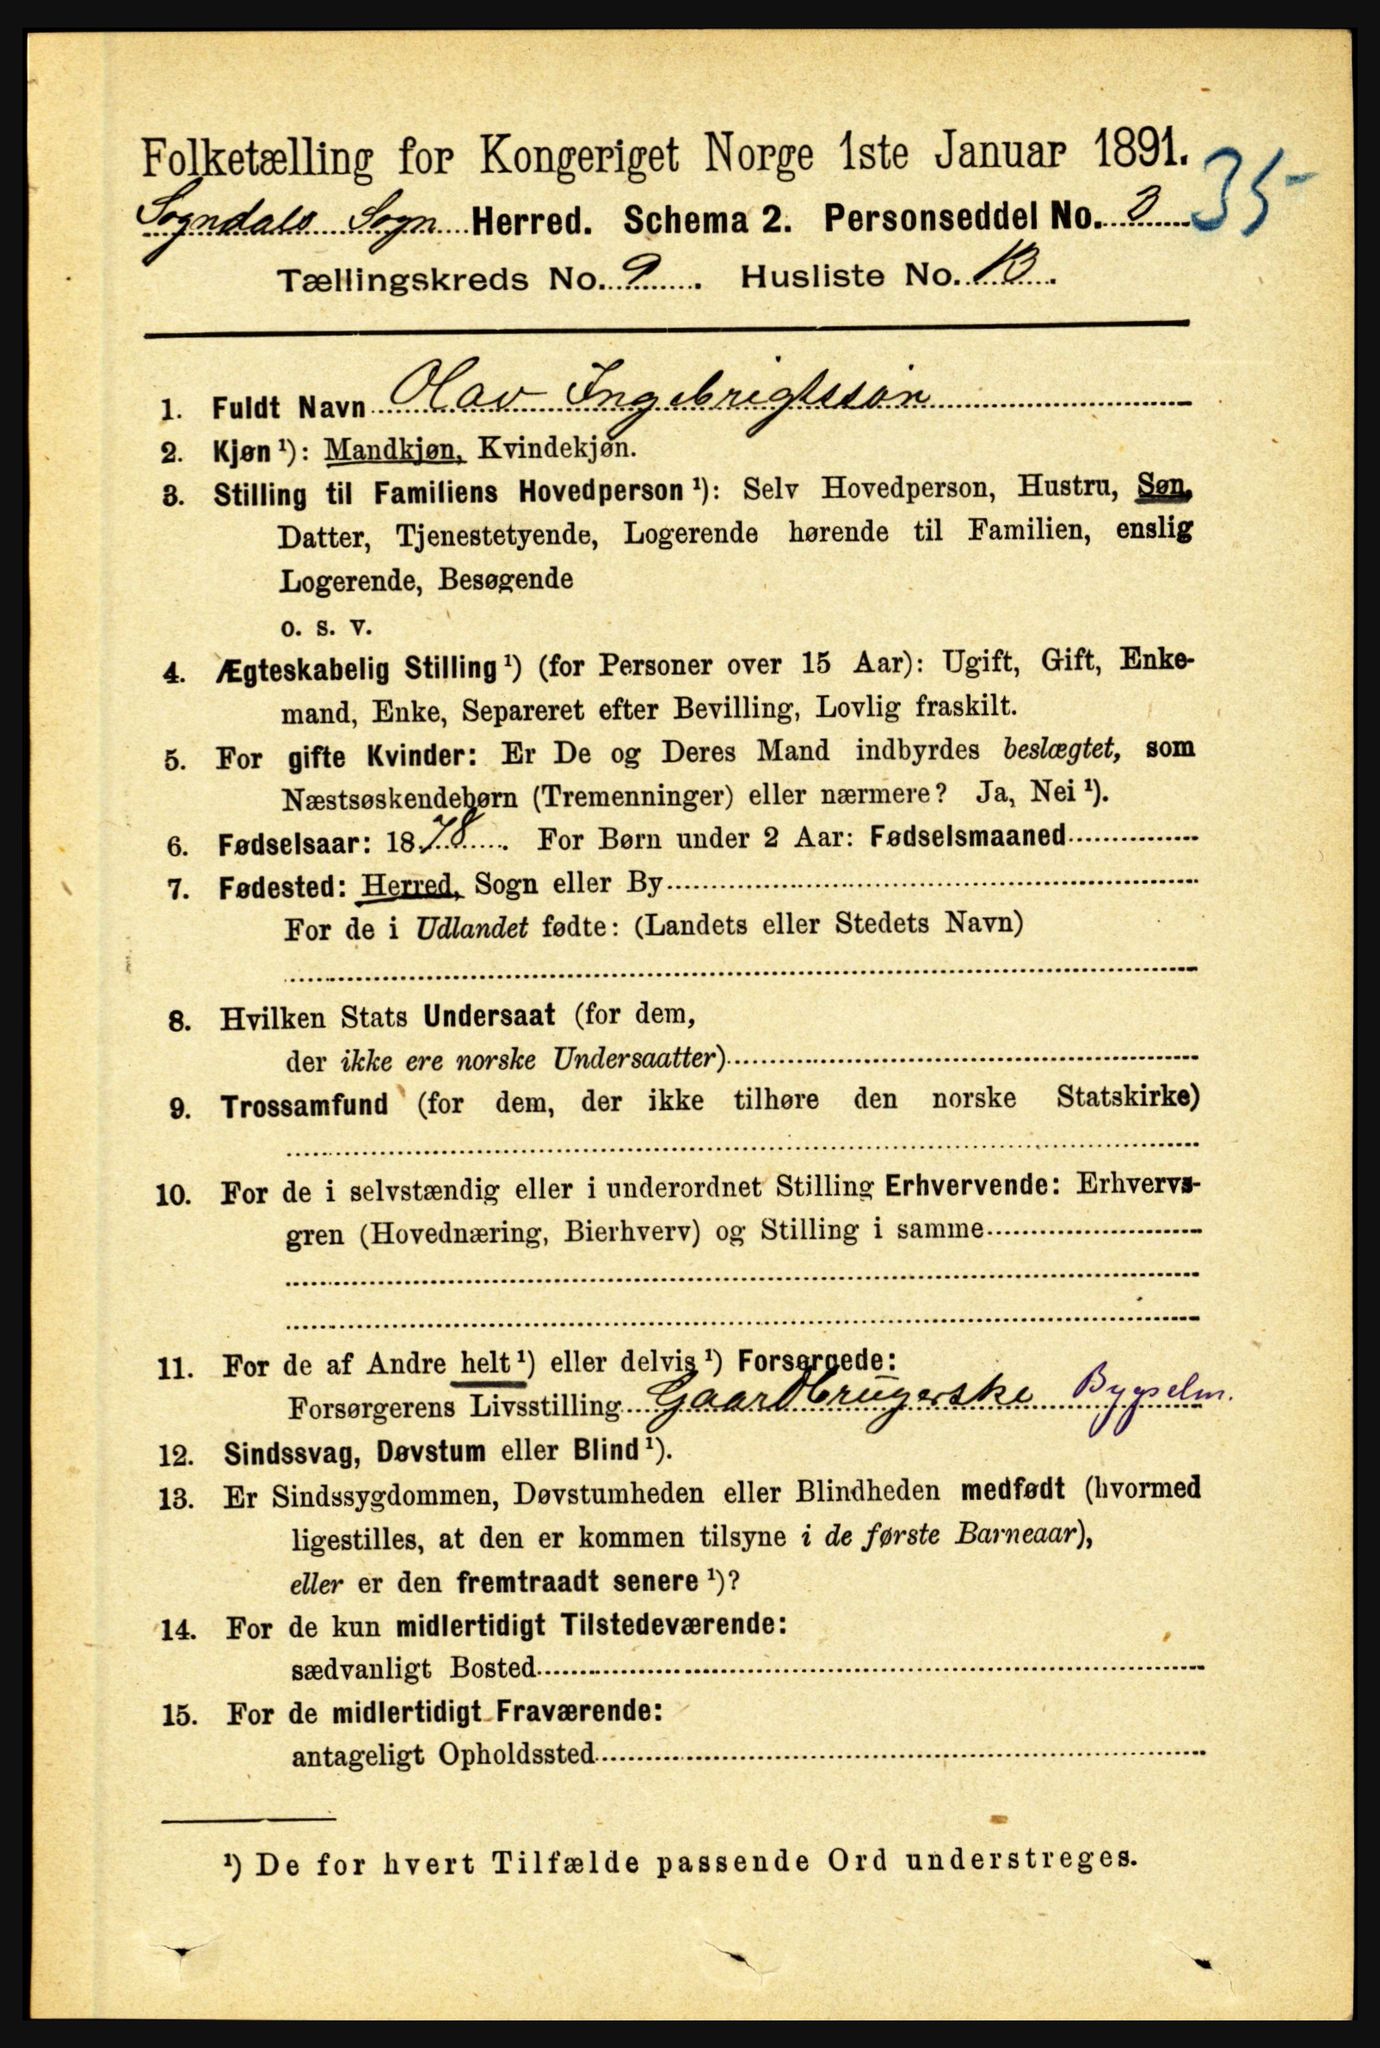 Folketælling for Kongeriget Norge 1ste Januar 1891.
35
Sogndals Sogn Herred. Schema 2. Personseddel No. 3
Tællingskreds No. 9. Husliste No. 13.
1. Fuldt Navn Olav Ingebrigtssön
2. Kjøn ¹): Mandkjøn, Kvindekjøn.
3. Stilling til Familiens Hovedperson ¹): Selv Hovedperson, Hustru, Søn,
Datter, Tjenestetyende, Logerende hørende til Familien, enslig
Logerende, Besøgende
o. s. v.
4. Ægteskabelig Stilling ¹) (for Personer over 15 Aar): Ugift, Gift, Enke-
mand, Enke, Separeret efter Bevilling, Lovlig fraskilt.
5. For gifte Kvinder: Er De og Deres Mand indbyrdes beslægtet, som
Næstsøskendebørn (Tremenninger) eller nærmere? Ja, Nei ¹).
6. Fødselsaar: 1878. For Børn under 2 Aar: Fødselsmaaned
7. Fødested: Herred, Sogn eller By
For de i Udlandet fødte: (Landets eller Stedets Navn)
8. Hvilken Stats Undersaat (for dem,
der ikke ere norske Undersaatter)
9. Trossamfund (for dem, der ikke tilhøre den norske Statskirke)
10. For de i selvstændig eller i underordnet Stilling Erhvervende: Erhvervs-
gren (Hovednæring, Bierhverv) og Stilling i samme
11. For de af Andre helt ¹) eller delvis ¹) Forsørgede:
Forsørgerens Livsstilling Gaardbrugerske Bygselm.
12. Sindssvag, Døvstum eller Blind ¹).
13. Er Sindssygdommen, Døvstumheden eller Blindheden medfødt (hvormed
ligestilles, at den er kommen tilsyne i de første Barneaar),
eller er den fremtraadt senere ¹)?
14. For de kun midlertidigt Tilstedeværende:
sædvanligt Bosted
15. For de midlertidigt Fraværende:
antageligt Opholdssted
¹) De for hvert Tilfælde passende Ord understreges.